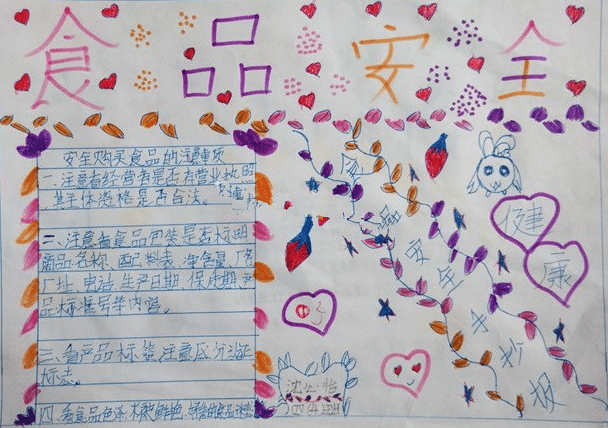 食品安全
安全购买食品的注意事项
一、注意看经营者是否有营业执照
其主体资格是否合法。
二、注意看食品包装是否标明
商品名称、配料表、净含量、厂名
厂址、电话、生产日期、保质期、产
品标准号等内容。
三、看产品标签,注意区分认证
标志。
四、看食品色泽
食品安全手抄报
健
康
四(4)班